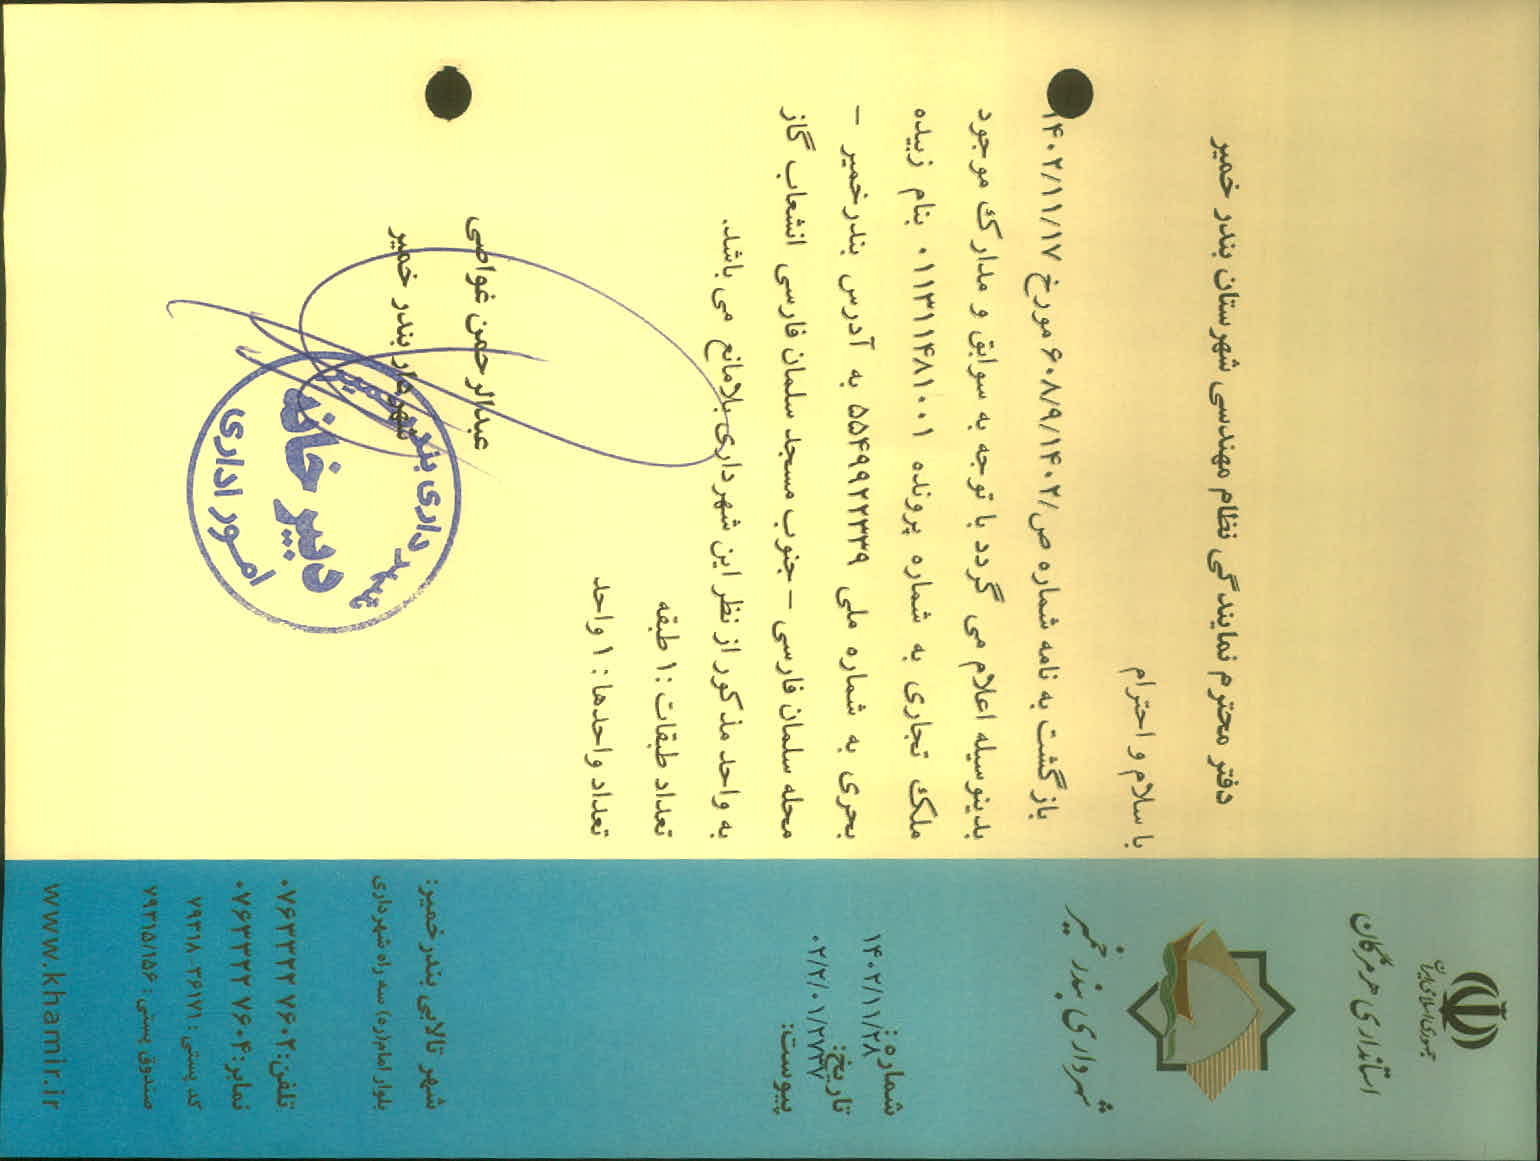 جمهوری اسلامی ایران
استانداری هرمزگان
شهرداری بندر خمیر
شماره:
۱۴۰۲/۱۱/۲۸
تاریخ:
۰۲/۲/۰۱/۲۷۳۷
پیوست:
شهر تالابی بندرخمیر:
بلوار امام(ره) سه راه شهرداری
تلفن: ۰۷۶۳۳۲۲ ۷۶۰۲
نمابر: ۰۷۶۳۳۲۲ ۷۶۰۴
کد پستی: ۳۶۱۷۱-۷۹۳۱۸
صندوق پستی: ۷۹۳۱۵/۱۵۶
www.khamir.ir
دفتر محترم نمایندگی نظام مهندسی شهرستان بندر خمیر
با سلام و احترام
بازگشت به نامه شماره ص/۶۰۸/۹/۱۴۰۲ مورخ ۱۴۰۲/۱۱/۱۷
بدینوسیله اعلام می گردد با توجه به سوابق و مدارک موجود
ملک تجاری به شماره پرونده ۰۱۱۳۱۱۴۸۱۰۰۱ بنام زبیده
بحری به شماره ملی ۵۵۴۹۹۲۲۳۳۹ به آدرس بندرخمیر –
محله سلمان فارسی – جنوب مسجد سلمان فارسی انشعاب گاز
به واحد مذکور از نظر این شهرداری بلامانع می باشد.
تعداد طبقات : ۱ طبقه
تعداد واحدها : ۱ واحد
عبدالرحمن غواصی
شهردار بندر خمیر
شهرداری بندر خمیر
دبیرخانه
امور اداری